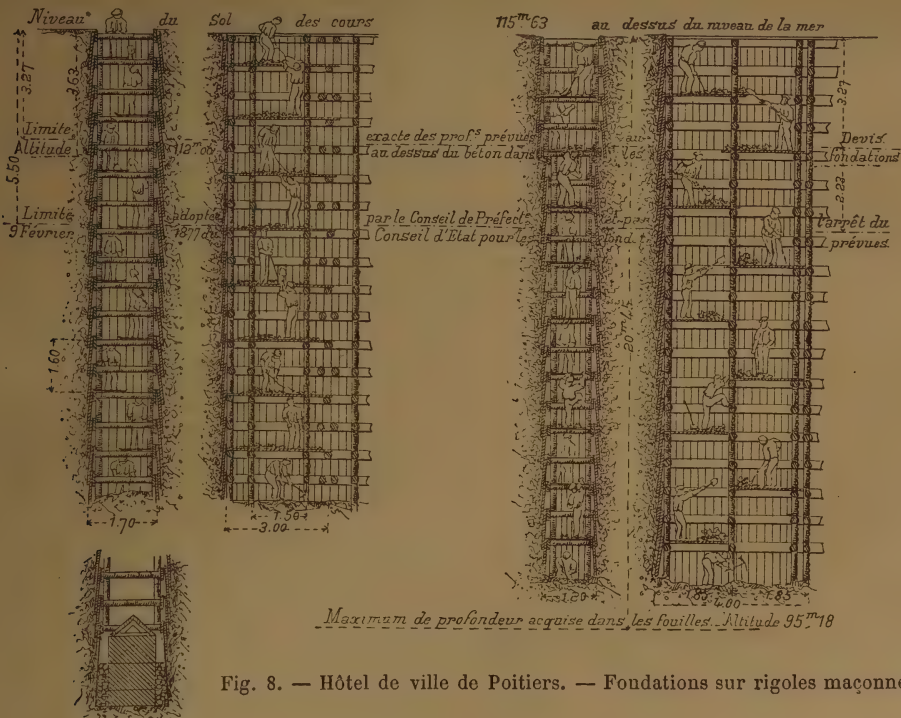 Niveau du Sol des cours 115m63 au dessus du niveau de la mer
3.27
3.63
3.27
Limite exacte des profs prévues au Devis.
Altitude 112m00 au dessus du béton dans les fondations
5.50
2.23
Limite adoptée par le Conseil de Préfecte et par l'arrêt du
9 Février 1877 du Conseil d'Etat pour les fondt prévues.
1.60
20m45
1.70
1.50
3.00
1.20
1.85
1.85
4.00
Maximum de profondeur acquise dans les fouilles. Altitude 95m18
Fig. 8. — Hôtel de ville de Poitiers. — Fondations sur rigoles maçonné